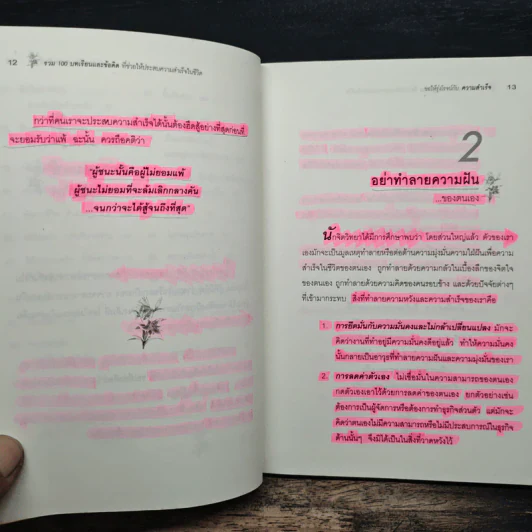 12 รวม 100 บทเรียนและข้อคิด ที่ช่วยให้ประสบความสำเร็จในชีวิต
กว่าที่คนเราจะประสบความสำเร็จได้นั้นต้องยืดสู้อย่างที่สุดก่อนที่
จะยอมรับว่าแพ้ ฉะนั้น ควรถือคติว่า
"ผู้ชนะนั้นคือผู้ไม่ยอมแพ้
ผู้ชนะไม่ยอมที่จะล้มเลิกกลางคัน
...จนกว่าจะได้สู้จนถึงที่สุด"
ความสำเร็จ 13
2
อย่าทำลายความฝัน
...ของตนเอง
นักจิตวิทยาได้มีการศึกษาพบว่า โดยส่วนใหญ่แล้ว ตัวของเรา
เองมักจะเป็นมูลเหตุทำลายหรือต่อต้านความมุ่งมั่นความใฝ่ฝันเพื่อความ
สำเร็จในชีวิตของตนเอง ถูกทำลายด้วยความกลัวในเบื้องลึกของจิตใจ
ของตนเอง ถูกทำลายด้วยความคิดของคนรอบข้าง และด้วยปัจจัยต่างๆ
ที่เข้ามากระทบ สิ่งที่ทำลายความหวังและความสำเร็จของเราคือ
1. การยึดมั่นกับความมั่นคงและไม่กล้าเปลี่ยนแปลง มักจะ
คิดว่างานที่ทำอยู่มีความมั่นคงดีอยู่แล้ว ทำให้ความมั่นคง
นั้นกลายเป็นอาวุธที่ทำลายความฝันและความมุ่งมั่นของเรา
2. การลดค่าตัวเอง ไม่เชื่อมั่นในความสามารถของตนเอง
กดตัวเองเอาไว้ด้วยการลดค่าของตนเอง ยกตัวอย่างเช่น
ต้องการเป็นผู้จัดการหรือต้องการทำธุรกิจส่วนตัว แต่มักจะ
คิดว่าตนเองไม่มีความสามารถหรือไม่มีประสบการณ์ในธุรกิจ
ด้านนั้นๆ จึงมิได้เป็นในสิ่งที่วาดหวังไว้